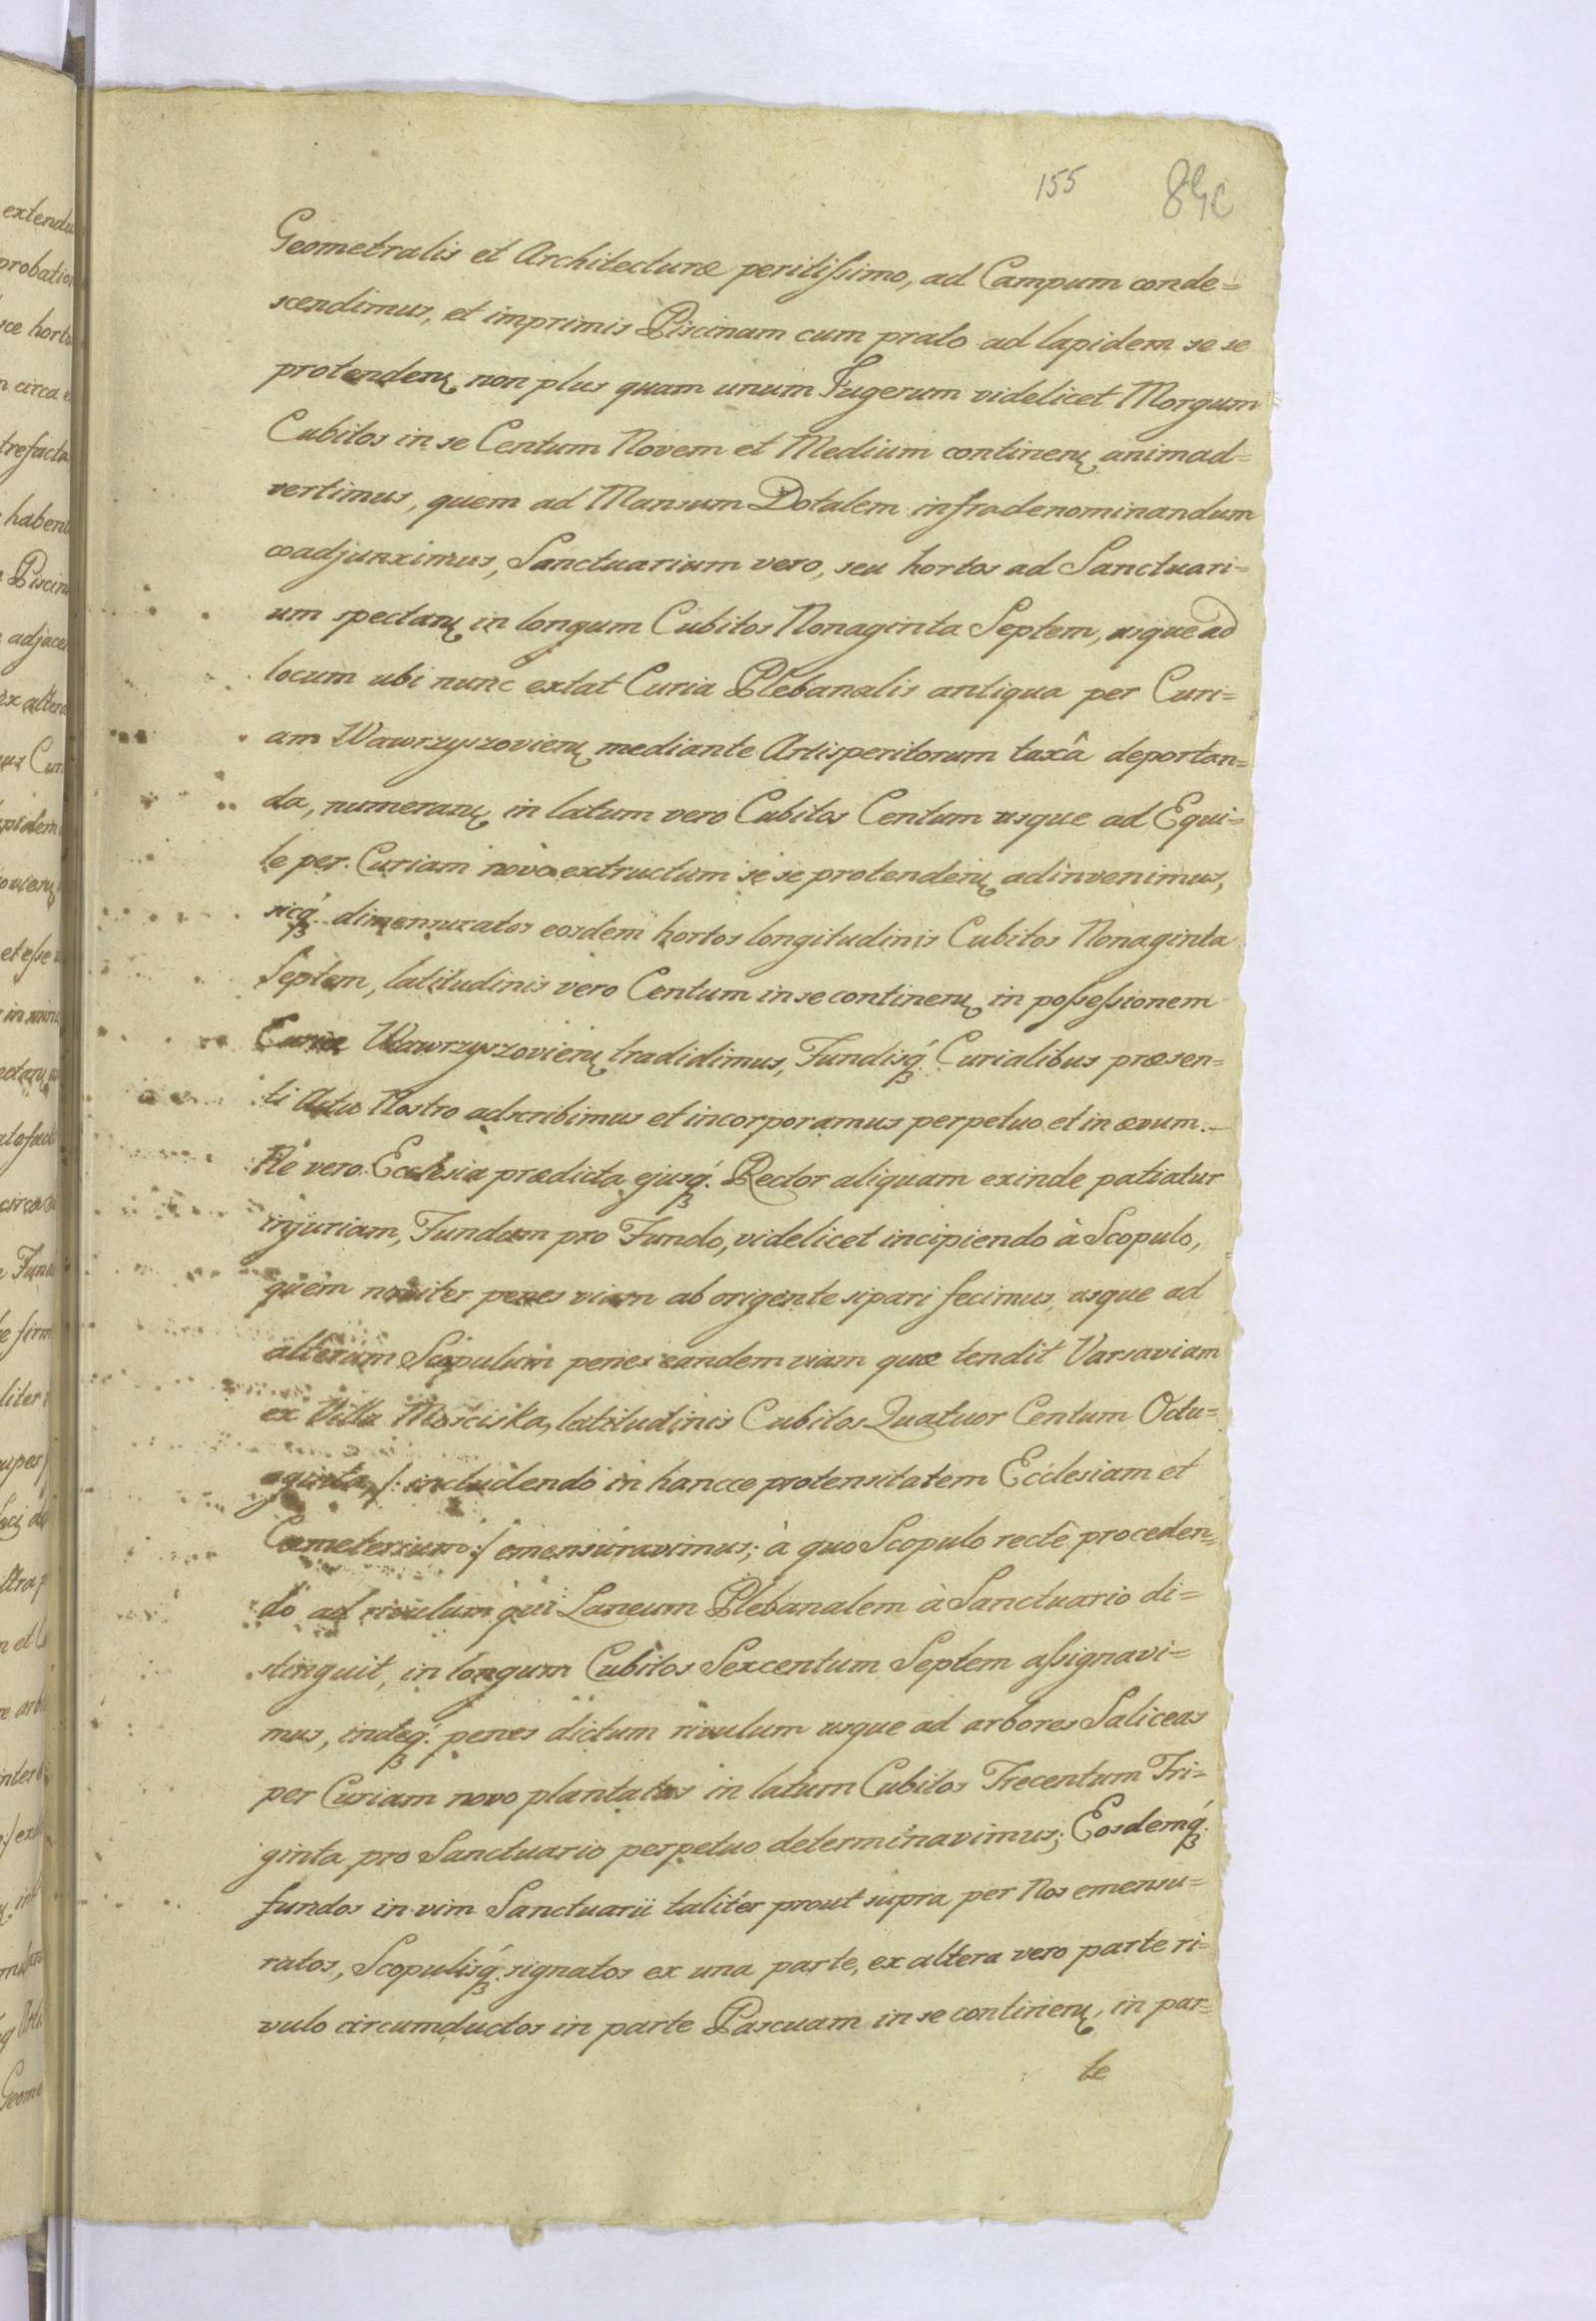 155 84c
Geometralis et Architecturæ peritißimo, ad Campum conde=
scendimus, et imprimis Piscinam cum prato ad lapidem se se
protendenꝫ non plus quam unum Jugerum videlicet Morgum
Cubitos in se Centum Novem et Medium continenꝫ animad=
vertimus, quem ad Mansum Dotalem infradenominandum
coadjunximus, Sanctuarium vero, seu hortos ad Sanctuari=
um spectanꝫ in longum Cubitos Nonaginta Septem, usque ad
locum ubi nunc extat Curia Plebanalis antiqua per Curi=
am Wawrzyszovienꝫ mediante Artisperitorum taxâ deportan=
da, numeranꝫ in latum vero Cubitos Centum usque ad Equi=
le per Curiam novo extructum se se protendenꝫ adinvenimus,
sicq́ꝫ dimensuratos eosdem hortos longitudinis Cubitos Nonaginta
Septem, latitudinis vero Centum in se continenꝫ in poßeßionem
Curiæ Wawrzyszovienꝫ tradidimus, Fundisq́ꝫ Curialibus præsen=
ti Actu Nostro adscribimus et incorporamus perpetuo et in ævum.—
Ne vero Ecclesia prædicta ejusq́ꝫ Rector aliquam exinde patiatur
injuriam, Fundum pro Fundo, videlicet incipiendo à Scopulo,
quem noviter penes viam ab origente sipari fecimus, usque ad
alterum Scopulum penes eandem viam quæ tendit Varsaviam
ex Villa Mościska, latitudinis Cubitos Quatuor Centum Octu=
aginta, /: includendo in hancce protensitatem Ecclesiam et
Cæmeterium :/ emensuravimus; à quo Scopulo rectê proceden=
do ad rivulum qui Laneum Plebanalem à Sanctuario di=
stinguit, in longum Cubitos Sexcentum Septem aßignavi=
mus, indeq́ꝫ penes dictum rivulum usque ad arbores Saliceas
per Curiam novo plantatas in latum Cubitos Trecentum Tri=
ginta pro Sanctuario perpetuo determinavimus; Eosdemq́ꝫ
fundos in vim Sanctuarii taliter prout supra per Nos emensu=
ratos, Scopulisq́ꝫ signatos ex una parte, ex altera vero parte ri=
vulo circumductos in parte Pascuam in se continenꝫ, in par=
te